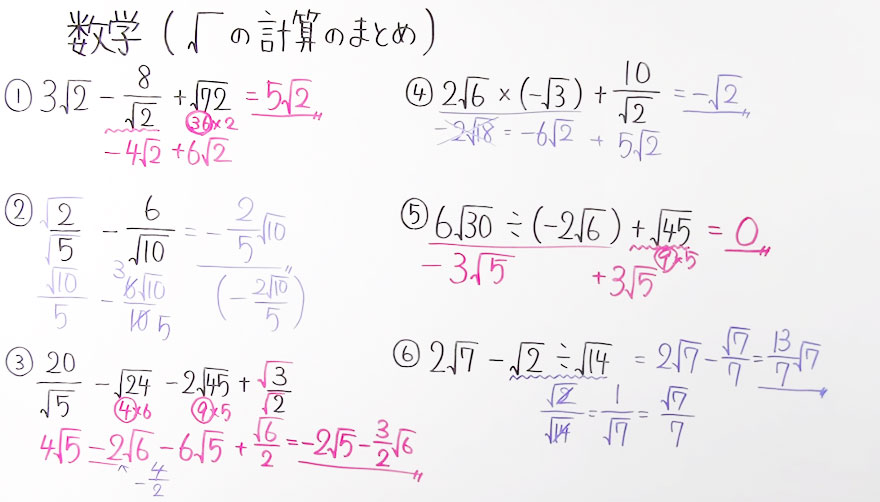 数学 (√の計算のまとめ)
① 3√2 - 8/√2 + √72 = 5√2
36×2
-4√2 + 6√2
② √2/√5 - 6/√10 = -2/5√10
√10/5 - 3 6√10/10 5 (-2√10/5)
③ 20/√5 - √24 - 2√45 + √3/√2
4×6 9×5
4√5 - 2√6 - 6√5 + √6/2 = -2√5 - 3/2√6
-4/2
④ 2√6 × (-√3) + 10/√2 = -√2
-2√18 = -6√2 + 5√2
⑤ 6√30 ÷ (-2√6) + √45 = 0
9×5
-3√5 +3√5
⑥ 2√7 - √2 ÷ √14 = 2√7 - √7/7 = 13/7√7
√2/√14 = 1/√7 = √7/7